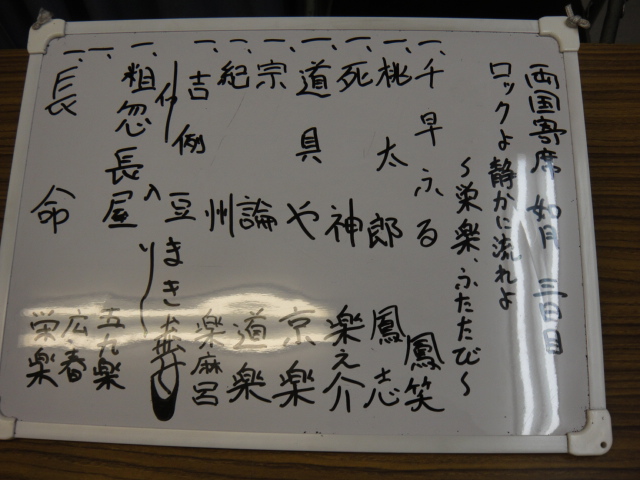 両国寄席 如月 三日目
ロックよ静かに流れよ
～栄楽、ふたたび～
一、千早ふる 鳳笑
一、桃太郎 鳳志
一、死神 楽之介
一、道具や 京楽
一、宗論 道楽
一、紀州 楽麻呂
一、吉例 豆まき
仲入り
一、粗忽長屋 五九楽
一、 広・春
一、長命 栄楽